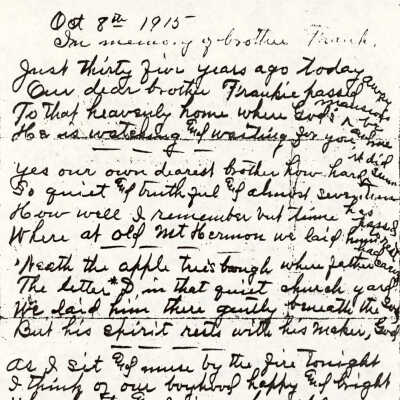 Oct 8th 1915
In memory of brother Frank.
Just thirty five years ago today
Our dear brother Frankie passed away
To that heavenly home where God's mansions
He is watching & waiting for you and me
Yes our own dearest brother how hard it did seem
So quiet & truthful & almost seventeen
How well I remember but time has passed
Where at old Mt Hermon we laid him
'Neath the apple tree's bough where father
The letter "D" in that quiet church yard
We laid him there gently beneath the sod
But his spirit rests with his Maker, God
As I sit & muse by the fire tonight
I think of our boyhood happy & bright